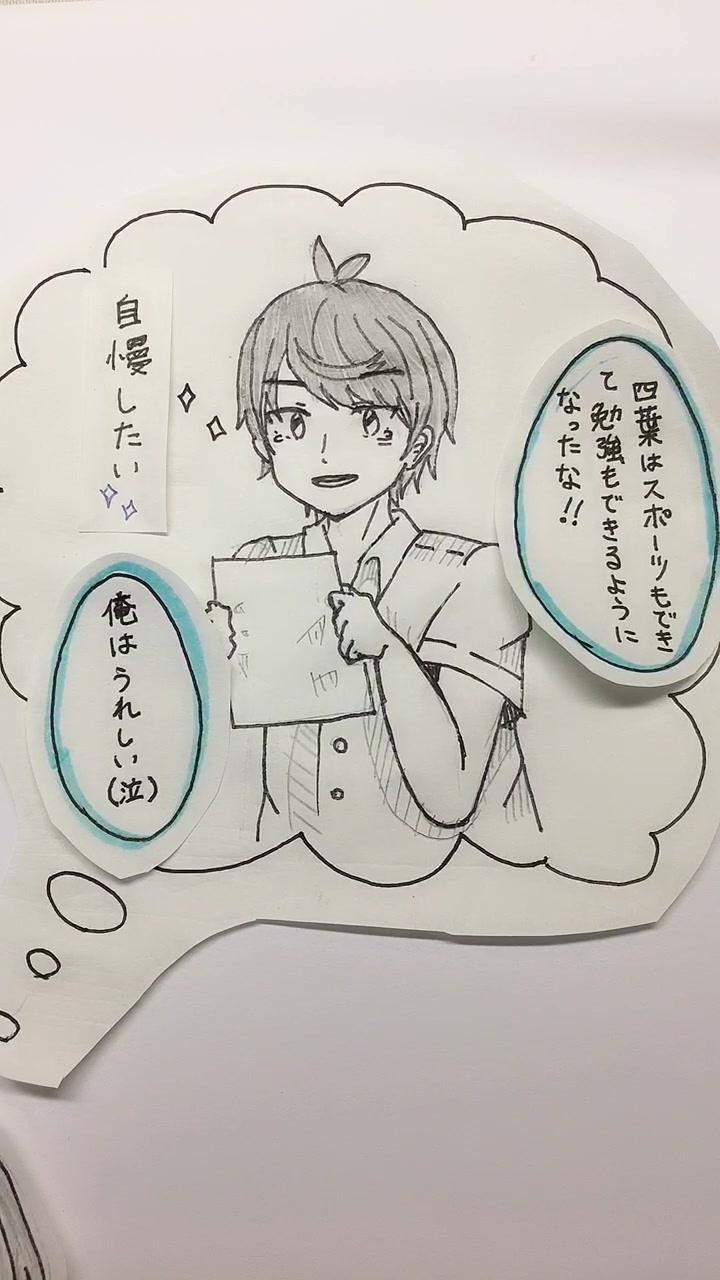 四葉はスポーツもでき
て勉強もできるように
なったな!!
自慢したい
俺はうれしい(泣)